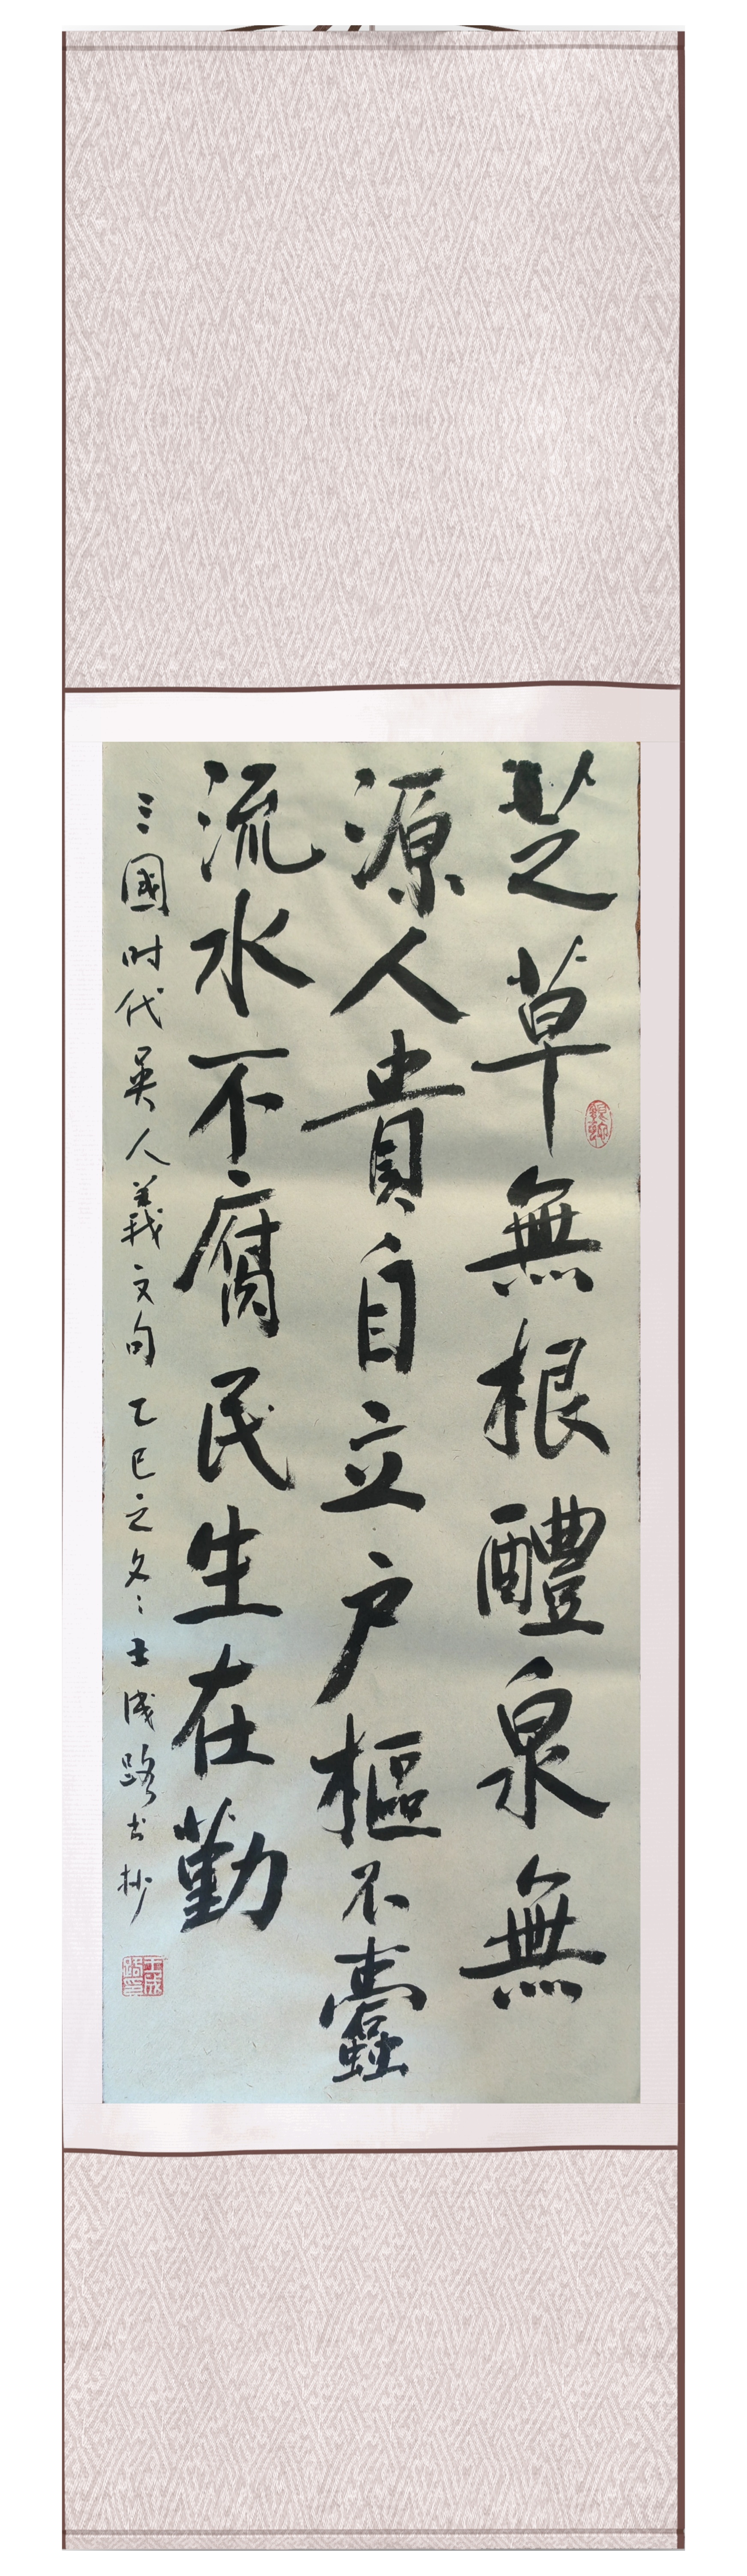 芝草無根醴泉無
源人貴自立户樞不蠹
流水不腐民生在勤
三國时代吴人義文句乙巳之冬王成路书抄
王成路印